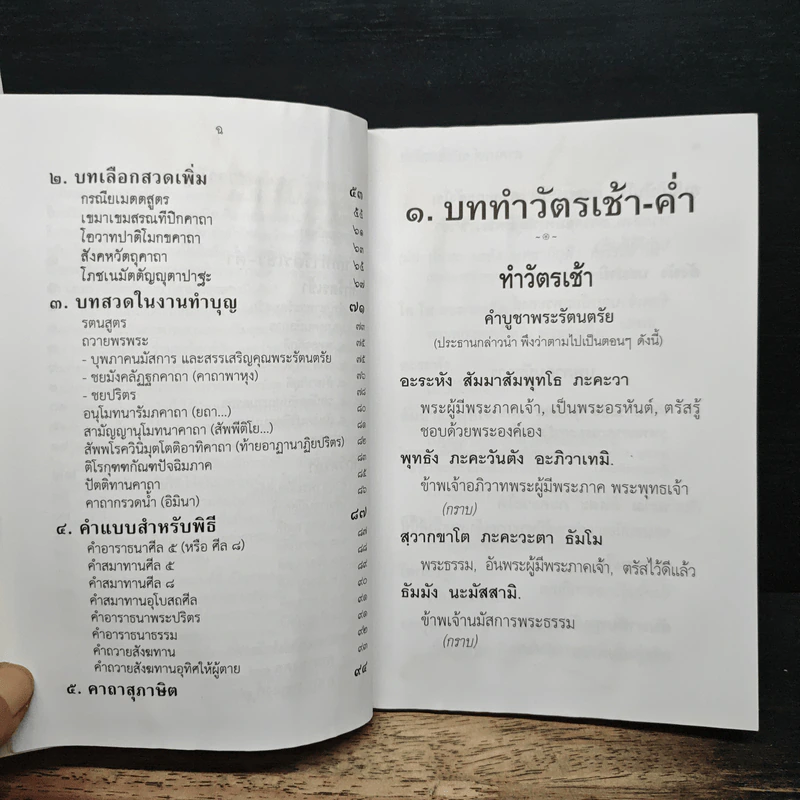 ฉ
๒. บทเลือกสวดเพิ่ม ๕๓
กรณียเมตตสูตร ๕๕
เขมาเขมสรณทีปิกคาถา ๖๑
โอวาทปาติโมกขคาถา ๖๓
สังคหวัตถุคาถา ๖๕
โภชเนมัตตัญญุตาปาฐะ ๖๗
๓. บทสวดในงานทำบุญ ๗๑
รตนสูตร ๗๓
ถวายพรพระ ๗๕
- บุพภาคนมัสการ และสรรเสริญคุณพระรัตนตรัย ๗๕
- ชยมังคลัฏฐกคาถา (คาถาพาหุง) ๗๖
- ชยปริตร ๗๘
อนุโมทนารัมภคาถา (ยถา...) ๘๐
สามัญญานุโมทนาคาถา (สัพพีติโย...) ๘๑
สัพพโรควินิมุตโตติอาทิคาถา (ท้ายอาฏานาฏิยปริตร) ๘๒
ติโรกุฑฑกัณฑปัจฉิมภาค ๘๓
ปัตติทานคาถา ๘๕
คาถากรวดน้ำ (อิมินา) ๘๖
๔. คำแบบสำหรับพิธี ๘๗
คำอาราธนาศีล ๕ (หรือ ศีล ๘) ๘๗
คำสมาทานศีล ๕ ๘๘
คำสมาทานศีล ๘ ๘๙
คำสมาทานอุโบสถศีล ๙๐
คำอาราธนาพระปริตร ๙๑
คำอาราธนาธรรม ๙๑
คำถวายสังฆทาน ๙๒
คำถวายสังฆทานอุทิศให้ผู้ตาย ๙๓
๕. คาถาสุภาษิต ๙๔
๑. บททำวัตรเช้า-ค่ำ
-๑-
ทำวัตรเช้า
คำบูชาพระรัตนตรัย
(ประธานกล่าวนำ พึงว่าตามไปเป็นตอนๆ ดังนี้)
อะระหัง สัมมาสัมพุทโธ ภะคะวา
พระผู้มีพระภาคเจ้า, เป็นพระอรหันต์, ตรัสรู้
ชอบด้วยพระองค์เอง
พุทธัง ภะคะวันตัง อะภิวาเทมิ.
ข้าพเจ้าอภิวาทพระผู้มีพระภาค พระพุทธเจ้า
(กราบ)
สฺวากขาโต ภะคะวะตา ธัมโม
พระธรรม, อันพระผู้มีพระภาคเจ้า, ตรัสไว้ดีแล้ว
ธัมมัง นะมัสสามิ.
ข้าพเจ้านมัสการพระธรรม
(กราบ)